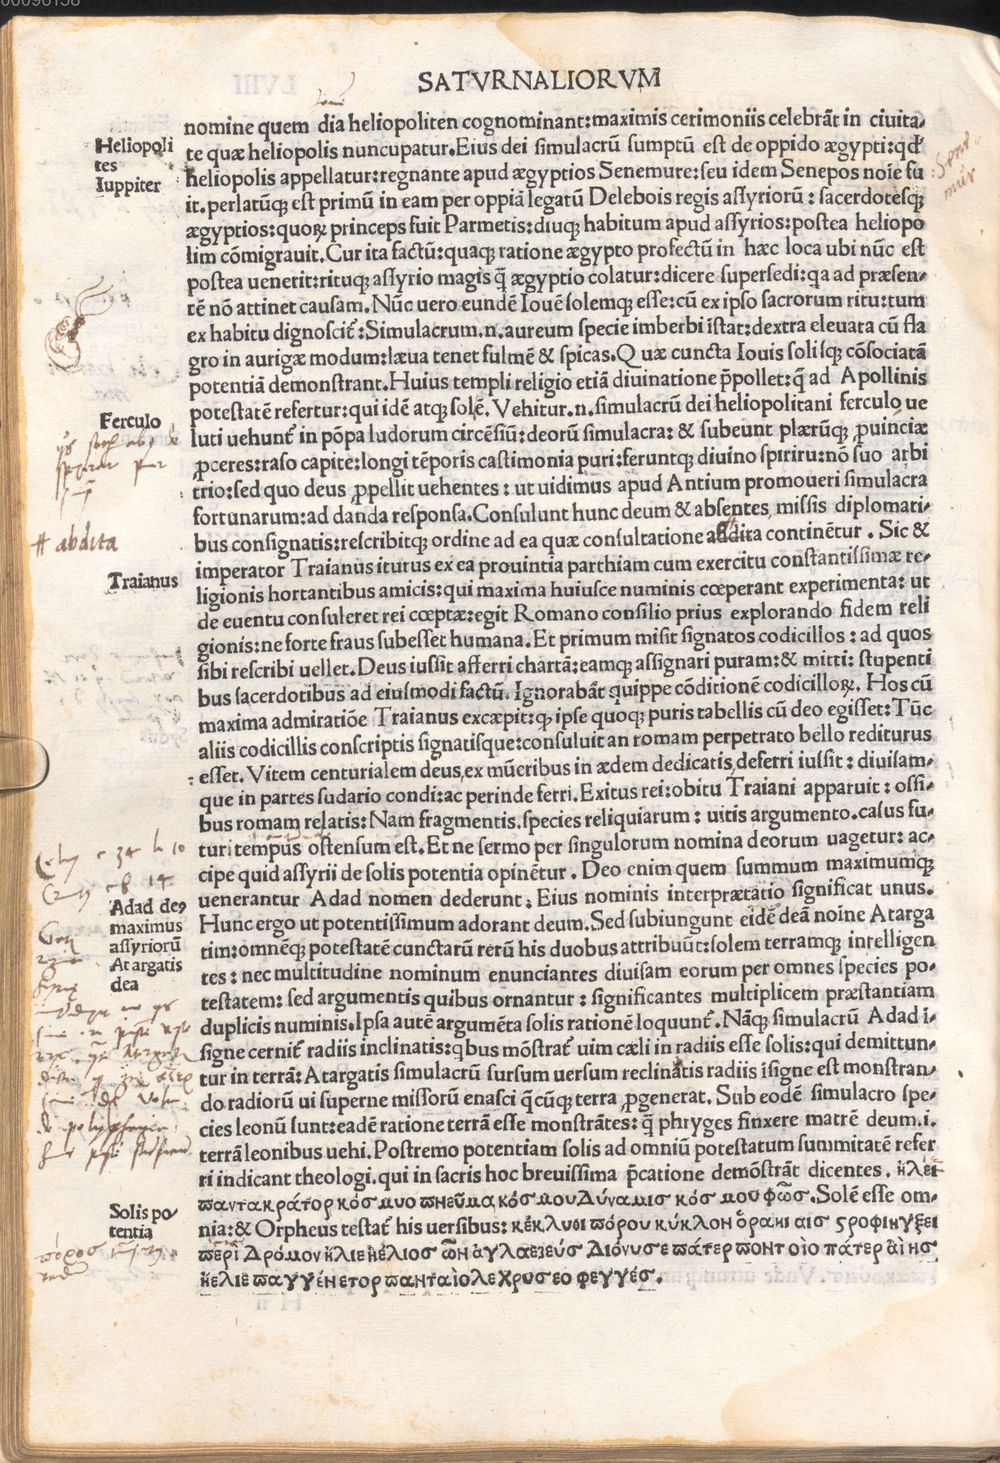 SATVRNALIORVM
nomine quem dia heliopoliten cognominant:maximis cerimoniis celebrāt in ciuita-
te quæ heliopolis nuncupatur.Eius dei simulacrū sumptū est de oppido ægypti:qđ
heliopolis appellatur:regnante apud ægyptios Senemure:seu idem Senepos noīe fu
it.perlatūq̢ est primū in eam per oppiā legatū Delebois regis assyriorū: sacerdotesq̢
ægyptios:quoꝝ princeps fuit Parmetis:diuq̢ habitum apud assyrios:postea heliopo
lim cōmigrauit.Cur ita factū:quaq̢ ratione ægypto profectū in hæc loca ubi nūc est
postea uenerit:rituq̢ assyrio magis q̄ ægyptio colatur:dicere supersedi:qa ad præsen-
tē nō attinet causam.Nūc uero eundē Iouē solemq̢ esse:cū ex ipso sacrorum ritu:tum
ex habitu dignoscit̄:Simulacrum.n.aureum specie imberbi īstat:dextra eleuata cū fla
gro in aurigæ modum:læua tenet fulmē & spicas.Quæ cuncta Iouis solisq̢ cōsociatā
potentiā demonstrant.Huius templi religio etiā diuinatione p̄pollet:q̄ ad Apollinis
potestatē refertur:qui idē atq̢ solē.Vehitur.n.simulacrū dei heliopolitani ferculo ue
luti uehunt̄ in pōpa ludorum circēsiū:deorū simulacra: & subeunt plærūq̢ ꝓuinciæ
ꝓceres:raso capite:longi tēporis castimonia puri:feruntq̢ diuino spiriru:nō suo arbi
trio:sed quo deus ꝓpellit uehentes: ut uidimus apud Antium promoueri simulacra
fortunarum:ad danda responsa.Consulunt hunc deum & absentes missis diplomati-
bus consignatis:rescribitq̢ ordine ad ea quæ consultatione addita continētur. Sic &
imperator Traianus iturus ex ea prouintia parthiam cum exercitu constantissimæ re-
ligionis hortantibus amicis:qui maxima huiusce numinis cœperant experimenta: ut
de euentu consuleret rei cœptæ:egit Romano consilio prius explorando fidem reli
gionis:ne forte fraus subesset humana.Et primum misit signatos codicillos: ad quos
sibi rescribi uellet.Deus iussit afferri chartā:eamq̢ assignari puram:& mitti: stupenti
bus sacerdotibus ad eiusmodi factū.Ignorabāt quippe cōditionē codicilloꝝ. Hos cū
maxima admiratiōe Traianus excæpit:ꝙ ipse quoq̢ puris tabellis cū deo egisset:Tūc
aliis codicillis conscriptis signatisque:consuluit an romam perpetrato bello rediturus
esset.Vitem centurialem deus,ex mūeribus in ædem dedicatis,deferri iussit: diuisam-
que in partes sudario condi:ac perinde ferri.Exitus rei:obitu Traiani apparuit: ossi-
bus romam relatis:Nam fragmentis.species reliquiarum: uitis argumento.casus fu-
turi tempus ostensum est.Et ne sermo per singulorum nomina deorum uagetur: ac-
cipe quid assyrii de solis potentia opinētur. Deo enim quem summum maximumq̢
uenerantur Adad nomen dederunt. Eius nominis interprætatio significat unus.
Hunc ergo ut potentissimum adorant deum.Sed subiungunt eidē deā noīne Atarga
tim:omnēq̢ potestatē cunctarū rerū his duobus attribuūt:solem terramq̢ intelligen
tes: nec multitudine nominum enunciantes diuisam eorum per omnes species po-
testatem: sed argumentis quibus ornantur: significantes multiplicem præstantiam
duplicis numinis.Ipsa autē argumēta solis rationē loquunt̄.Nāq̢ simulacrū Adad ī-
signe cernit̄ radiis inclinatis:qbus mōstrat̄ uim cæli in radiis esse solis:qui demittun-
tur in terrā:Atargatis simulacrū sursum uersum reclinatis radiis īsigne est monstran-
do radiorū ui superne missorū enasci q̄cūq̢ terra ꝓgenerat. Sub eodē simulacro spe-
cies leonū sunt:eadē ratione terrā esse monstrātes:q̄ phryges finxere matrē deum.i.
terrā leonibus uehi.Postremo potentiam solis ad omniū potestatum summitatē refer
ri indicant theologi.qui in sacris hoc breuissima p̄catione demōstrāt dicentes. ἥλει
παντακράτορ κόσμυο πνεῦμα κόσμου Δύναμισ κόσμου φῶσ.Solē esse om-
nia:& Orpheus testat̄ his uersibus: κέκλυει πόρου κύκλον
Heliopoli
tes
Iuppiter
Ferculo
# abdita
Traianus
Adad deꝰ
maximus
assyriorū
Atargatis
dea
Solis po-
tentia